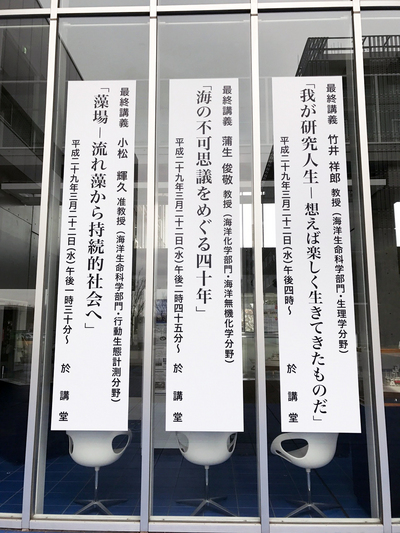 最終講義 竹井 祥郎 教授（海洋生命科学部門・生理学分野）
「我が研究人生―想えば楽しく生きてきたものだ」
平成二十九年三月二十二日（水）午後四時～
於 講 堂
最終講義 蒲生 俊敬 教授（海洋化学部門・海洋無機化学分野）
「海の不可思議をめぐる四十年」
平成二十九年三月二十二日（水）午後二時四十五分～
於 講 堂
最終講義 小松 輝久 准教授（海洋生命科学部門・行動生態計測分野）
「藻場―流れ藻から持続的社会へ」
平成二十九年三月二十二日（水）午後一時三十分～
於 講 堂